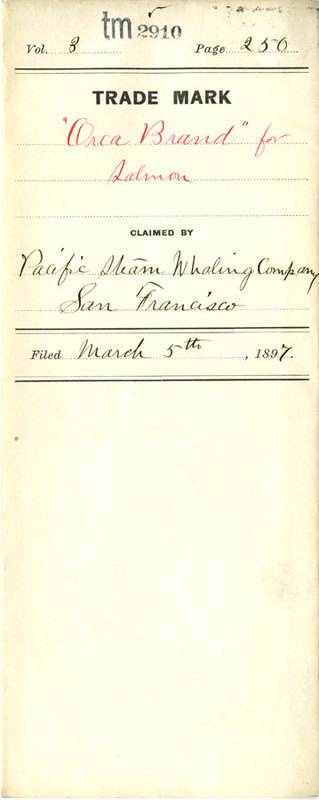 tm 2910
Vol. 3 Page 250
TRADE MARK
"Orca Brand" for
Salmon
CLAIMED BY
Pacific Steam Whaling Company
San Francisco
Filed March 5th, 1897.